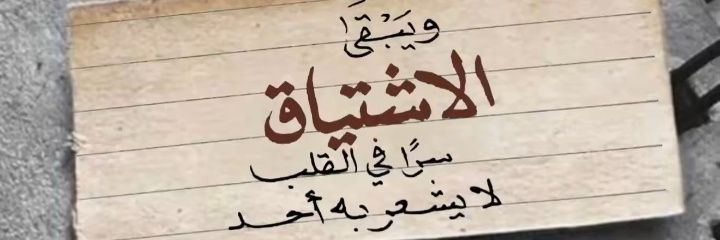 ويَبْقَى
الاشتياق
سرًا في القلب
لا يشعر به أحد